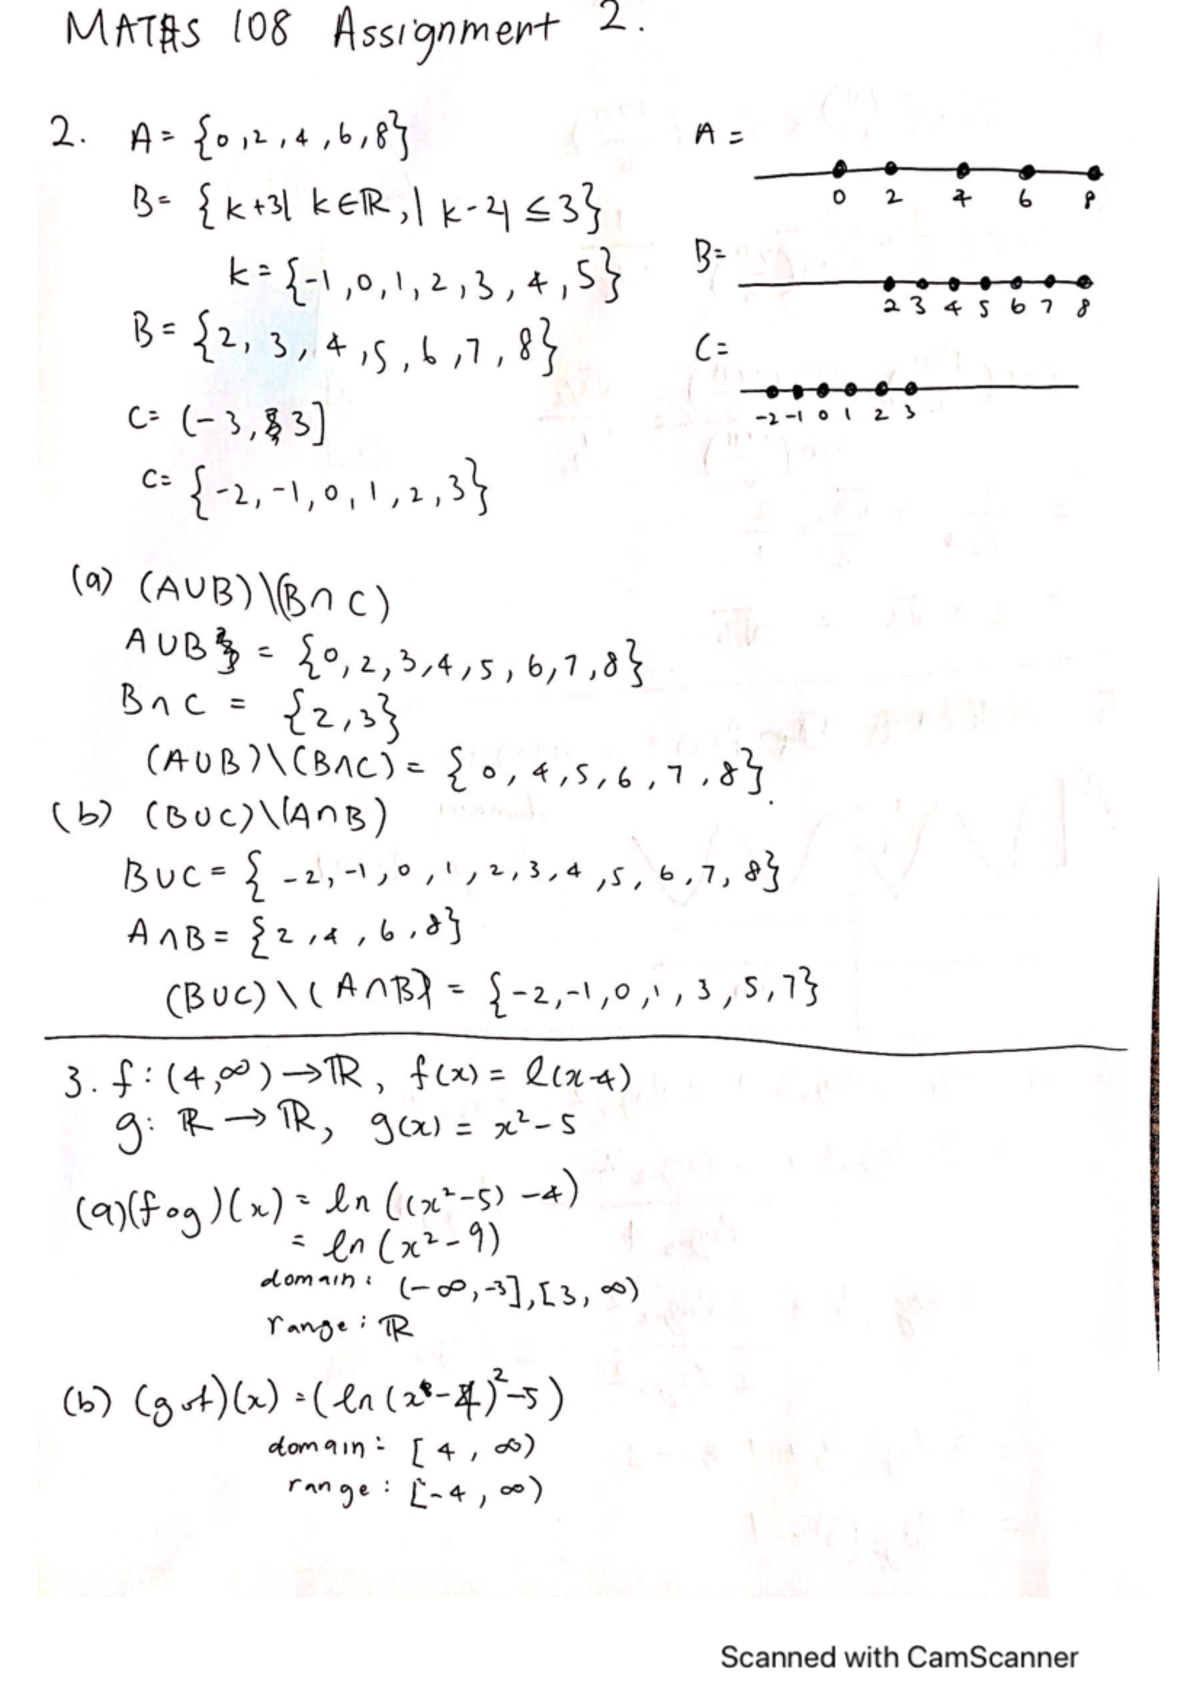 MATHS 108 Assignment 2.
2. A = {0,2,4,6,8}
B = {k+3| k∈ℝ, |k-2| ≤ 3}
k = {-1,0,1,2,3,4,5}
B = {2,3,4,5,6,7,8}
C = (-3, 3]
C = {-2,-1,0,1,2,3}
A =
0 2 4 6 8
B =
2 3 4 5 6 7 8
C =
-2 -1 0 1 2 3
(a) (A∪B)\(B∩C)
A∪B = {0,2,3,4,5,6,7,8}
B∩C = {2,3}
(A∪B)\(B∩C) = {0,4,5,6,7,8}.
(b) (B∪C)\(A∩B)
B∪C = {-2,-1,0,1,2,3,4,5,6,7,8}
A∩B = {2,4,6,8}
(B∪C)\(A∩B) = {-2,-1,0,1,3,5,7}
3. f: (4,∞) → ℝ, f(x) = l(x-4)
g: ℝ → ℝ, g(x) = x²-5
(a) (f∘g)(x) = ln((x²-5)-4)
= ln(x²-9)
domain: (-∞,-3],[3,∞)
range: ℝ
(b) (g∘f)(x) = (ln(x-4)²-5)
domain: [4,∞)
range: [-4,∞)
Scanned with CamScanner